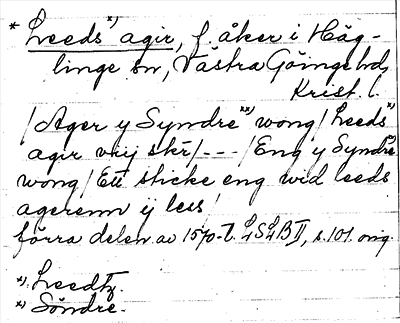 * Leeds*) agir, f. åker i Häg-
linge sn, Västra Göinge hd,
Krist. l.
/Ager y Syndre**) wong/Leeds*)
agir vij skr/---/Eng y Syndre
wong/Ett sticke eng wid leeds
agerenn ij less/
förra delen av 1570-t. LSLB II, s. 101. orig.
*) Leedtz.
**) Söndre.